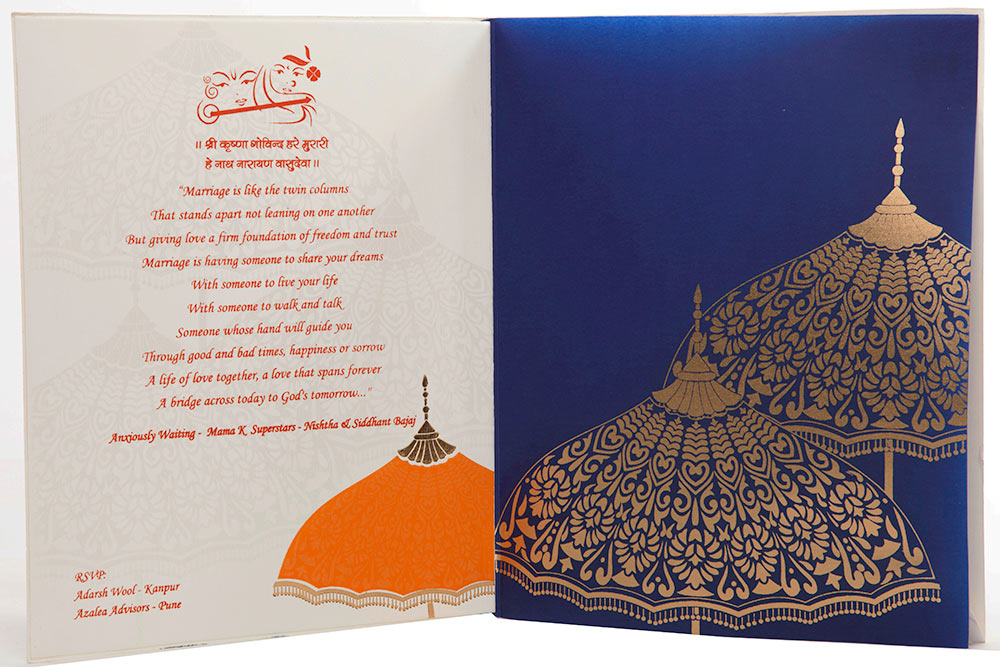 ॥ श्री कृष्णा गोविन्द हरे मुरारी
हे नाथ नारायण वासुदेवा ॥
"Marriage is like the twin columns
That stands apart not leaning on one another
But giving love a firm foundation of freedom and trust
Marriage is having someone to share your dreams
With someone to live your life
With someone to walk and talk
Someone whose hand will guide you
Through good and bad times, happiness or sorrow
A life of love together, a love that spans forever
A bridge across today to God's tomorrow..."
Anxiously Waiting - Mama K Superstars - Nishtha & Siddhant Bajaj
RSVP:
Adarsh Wool - Kanpur
Azalea Advisors - Pune